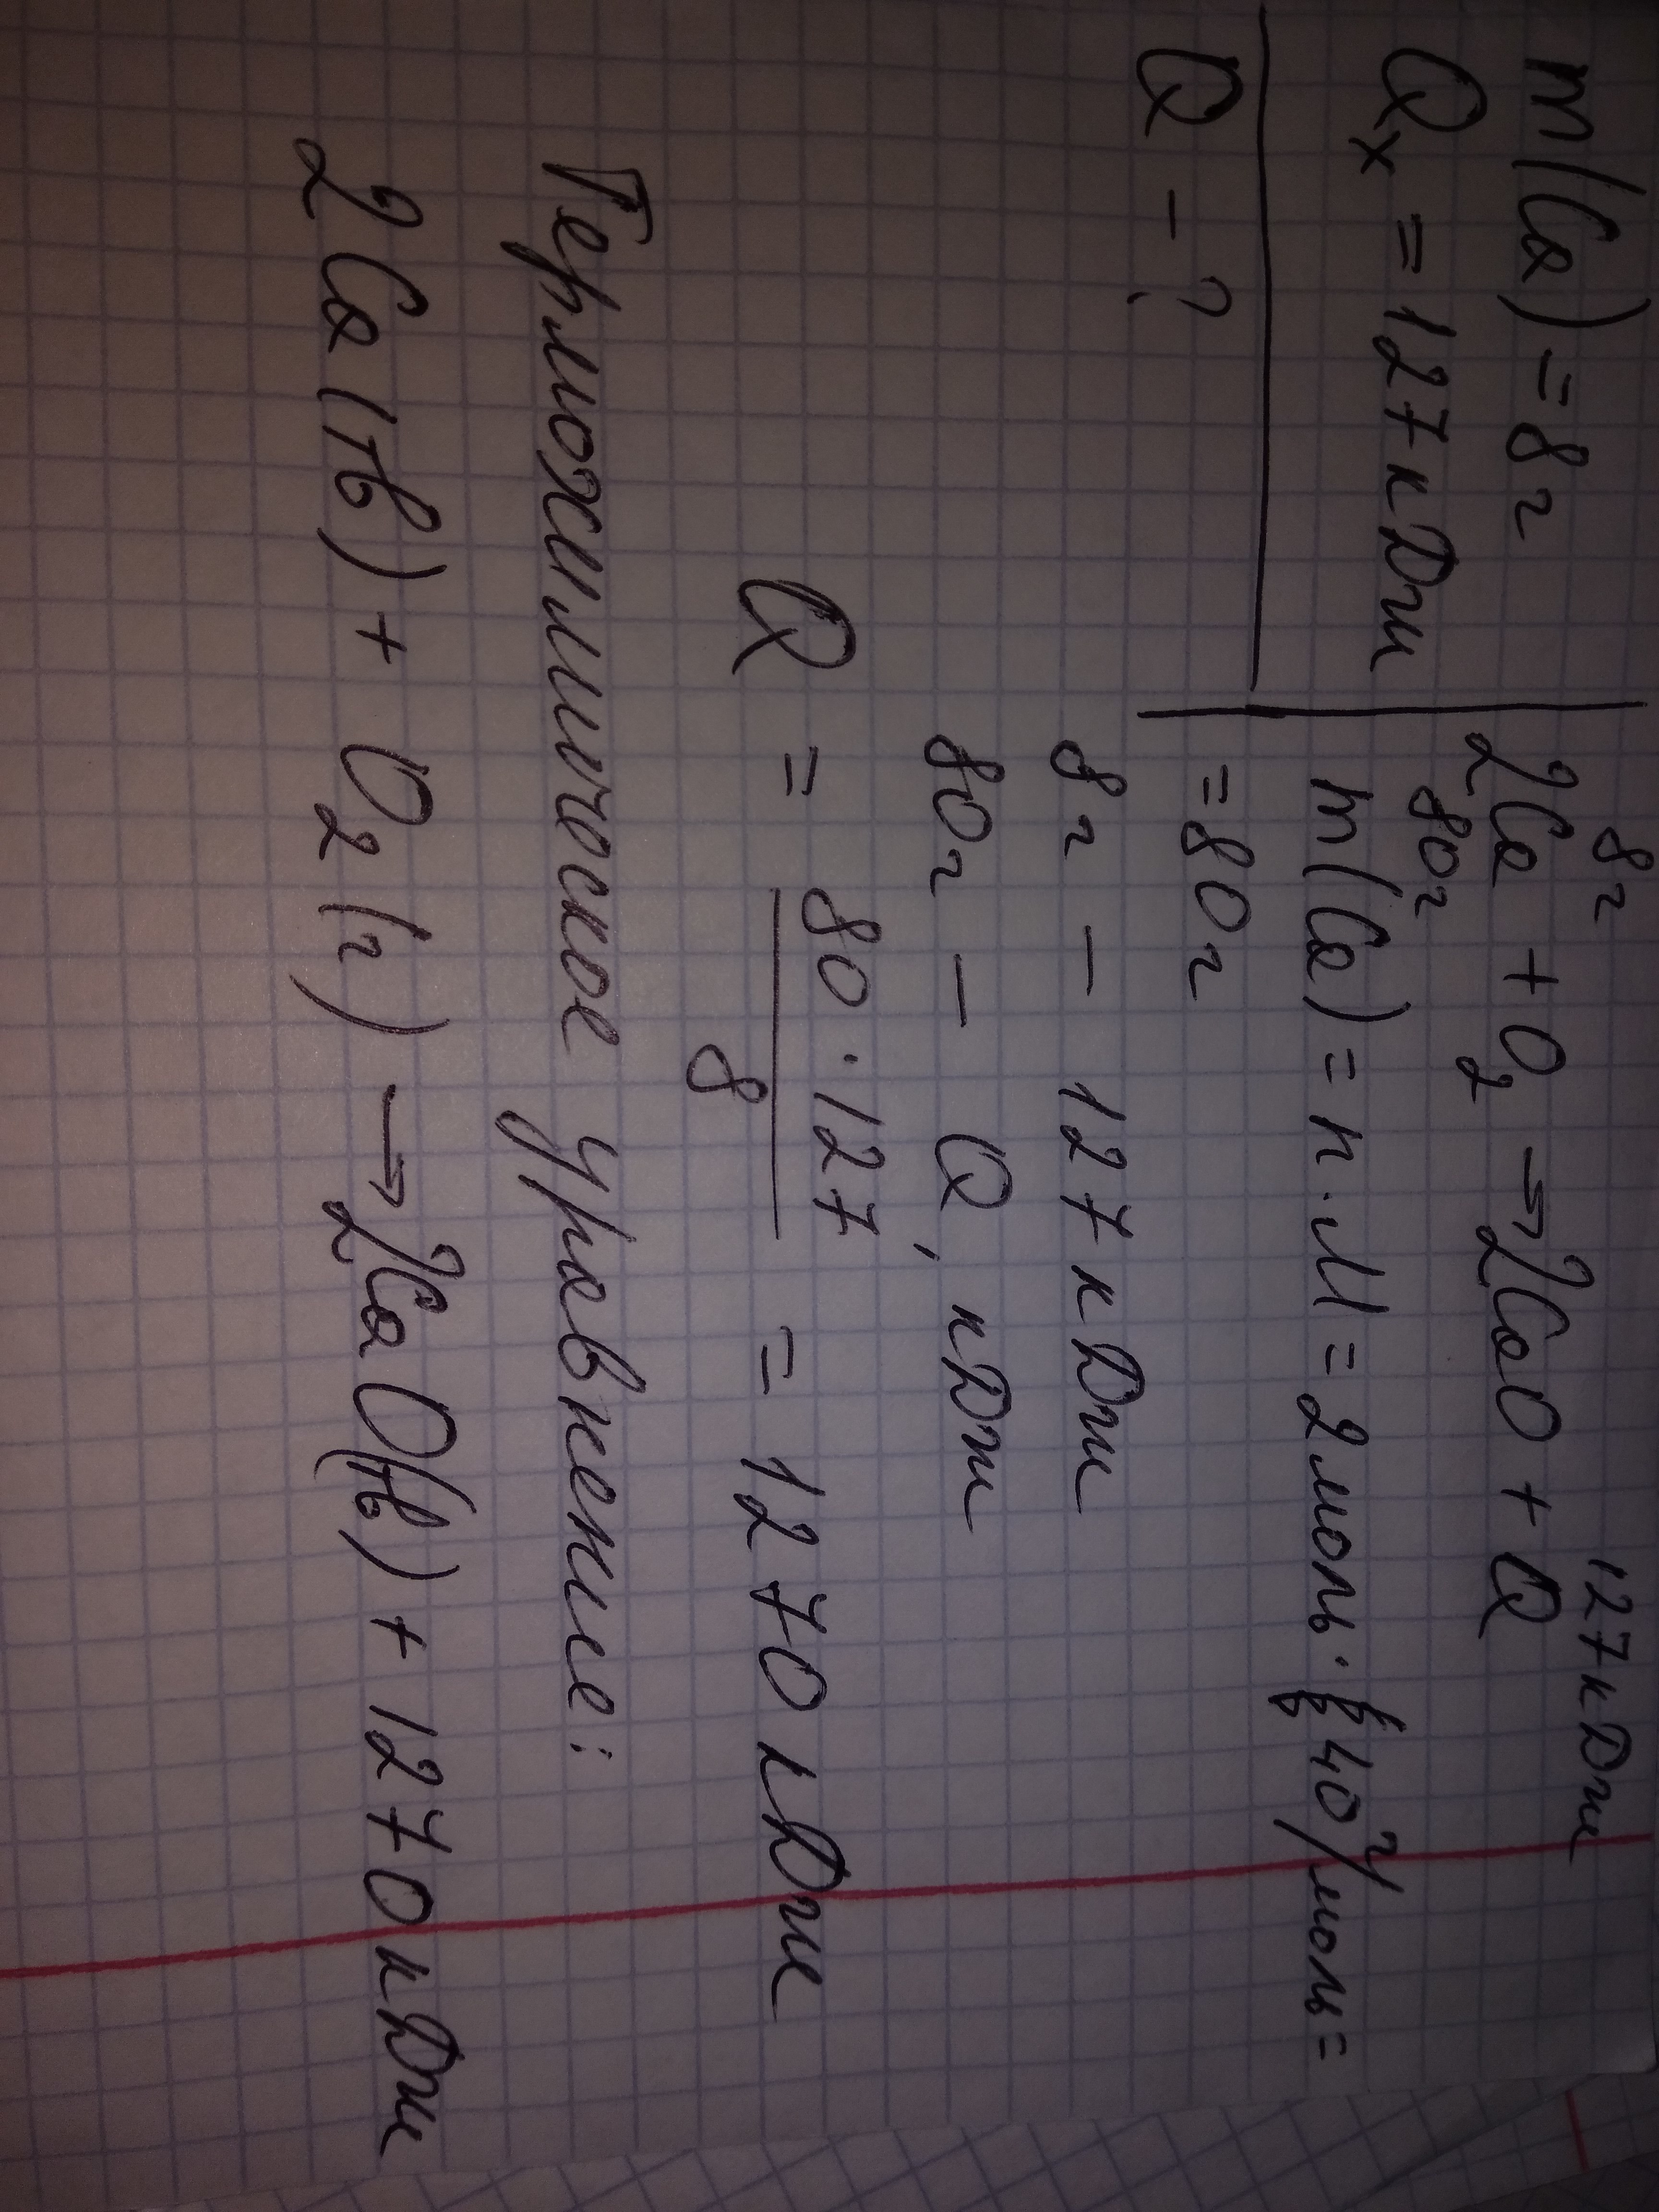 m(Ca) = 8г
Qx = 127кДж
Q - ?
8г 127кДж
2Ca + O₂ → 2CaO + Q
80г
m(Ca) = n · M = 2моль · 40г/моль =
= 80г
8г - 127кДж
80г - Q, кДж
Q = 80 · 127 / 8 = 1270 кДж
Термохимическое уравнение:
2Ca(тв) + O₂(г) → 2CaO(тв) + 1270кДж